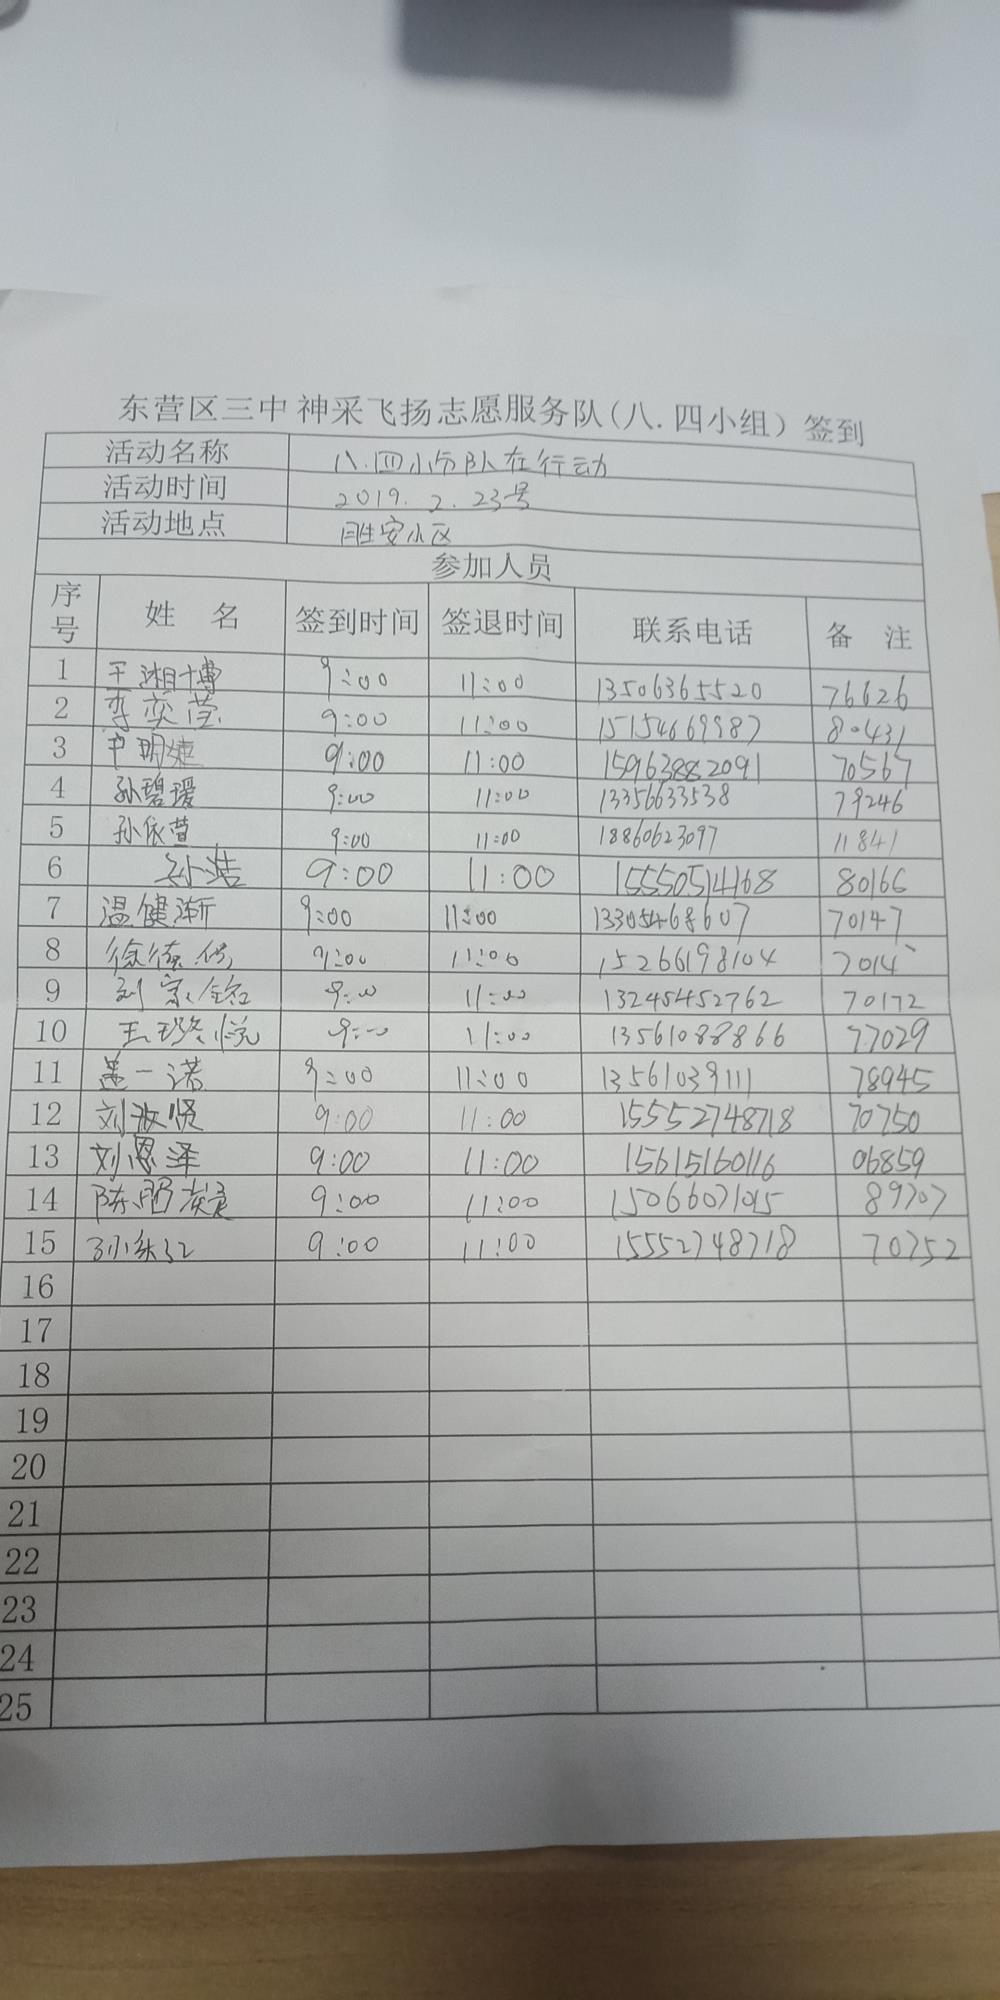 东营区三中神采飞扬志愿服务队(八.四小组) 签到
活动名称 八.四小分队在行动
活动时间 2019.2.23号
活动地点 胜安小区
参加人员
序号 姓名 签到时间 签退时间 联系电话 备注
1 王湘博 9:00 11:00 13506365520 76626
2 李奕莹 9:00 11:00 15154669987 80431
3 9:00 11:00 15963882091 70567
4 孙碧瑗 9:00 11:00 13356633538 79246
5 孙依萱 9:00 11:00 18860623097 11841
6 孙浩 9:00 11:00 15550514168 80166
7 温健渐 9:00 11:00 13305468607 70147
8 9:00 11:00 15266198104 7014
9 刘家铭 9:00 11:00 13245452762 70172
10 王璐悦 9:00 11:00 13561088866 77029
11 盖一诺 9:00 11:00 13561039111 78945
12 刘汝贤 9:00 11:00 15552748718 70750
13 刘恩泽 9:00 11:00 15615160116 06859
14 9:00 11:00 15066071015 89707
15 9:00 11:00 15552748718 70752
16
17
18
19
20
21
22
23
24
25